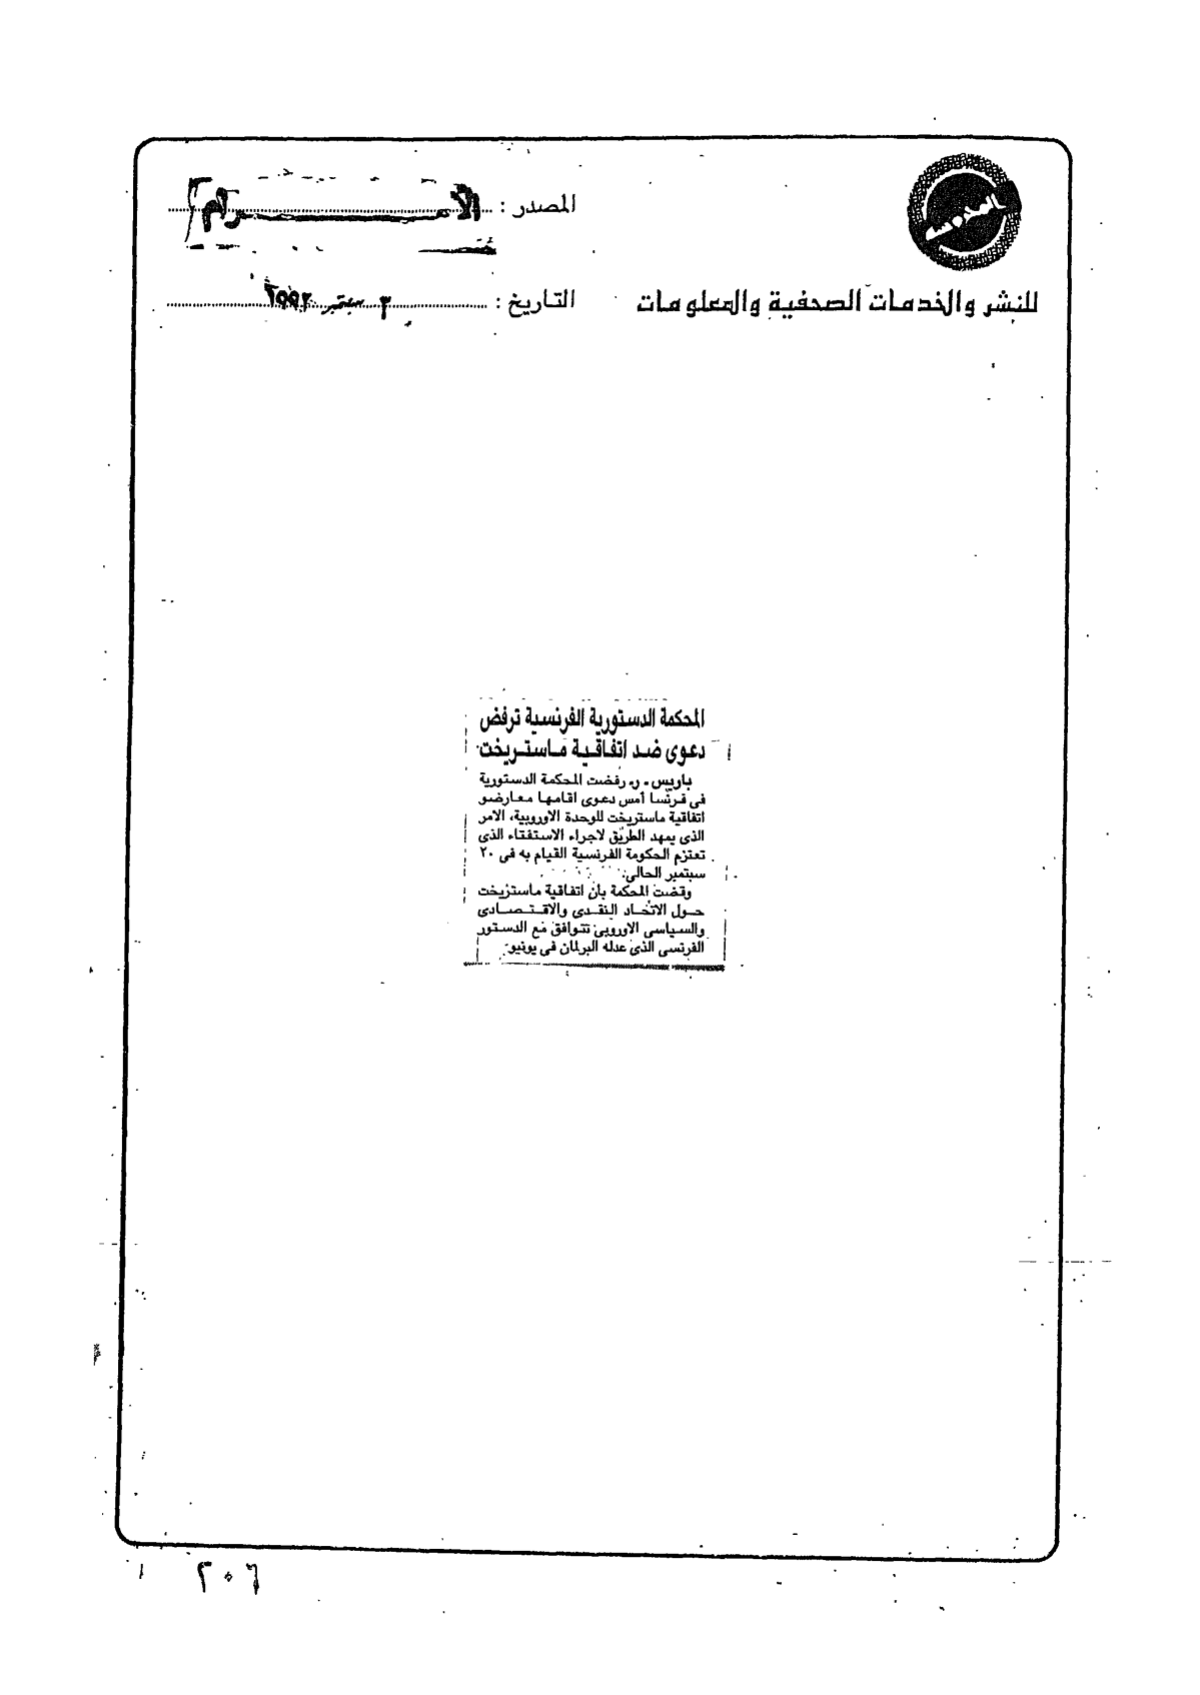 المصدر : الأهـرام
للنشر والخدمات الصحفية والمعلومات
التاريخ : ٣ سبتمبر ١٩٩٢
المحكمة الدستورية الفرنسية ترفض
دعوى ضد اتفاقية ماستريخت
باريس ـ ر ـ رفضت المحكمة الدستورية
فى فرنسا أمس دعوى اقامها معارضو
اتفاقية ماستريخت للوحدة الاوروبية، الامر
الذى يمهد الطريق لاجراء الاستفتاء الذى
تعتزم الحكومة الفرنسية القيام به فى ٢٠
سبتمبر الحالى.
وقضت المحكمة بان اتفاقية ماستريخت
حول الاتحاد النقدى والاقتصادى
والسياسى الاوروبى تتوافق مع الدستور
الفرنسى الذى عدله البرلمان فى يونيو.
٢٠٦